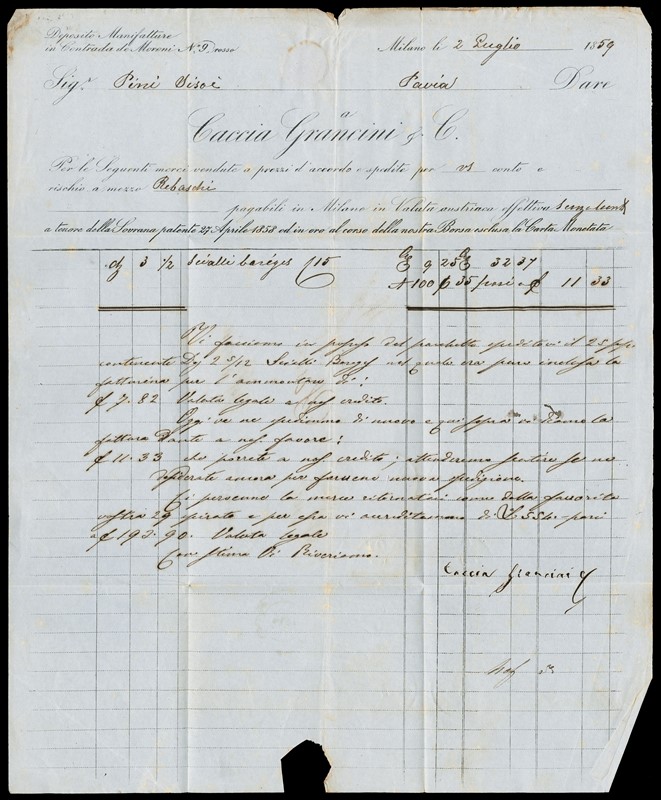 Deposito Manifatture
in Contrada de' Moroni N.° 9 rosso
Milano li 2 Luglio 1859
Sig.r Pini Sisoi Pavia Dare
a
Caccia Grancini & C.
Per le Seguenti merci vendute a prezzi d'accordo e spedite per vs conto e
rischio a mezzo Rebaschi
pagabili in Milano in Valuta austriaca effettiva
a tenore della Sovrana patente 27 Aprile 1858 od in oro al corso della nostra Borsa esclusa la Carta Monetata
dz 3 1/2 Scialli baréges 115 9 25 32 37
100 35 pari a f 11 33
Vi facciamo in del pacchetto speditovi il 25
contenente Dz 2 5/12 Scialli nel quale era pure inclusa la
fatturina per l'ammontare di:
f 7.82 Valuta legale a nos credito.
Oggi ve ne spedimmo di nuovo e qui sopra vi diamo la
fattura Dante a nos favore:
f 11.33 che porrete a nos credito; attenderemo sentire se ne
desiderate ancora per farvene nuova spedizione.
Ci pervenne la merce ritornataci come dalla favorita
vostra 29 pirato e per essa vi accreditiamo di 554. pari
a f 193.90. Valuta legale
Con stima Vi Riveriamo.
Caccia Grancini C